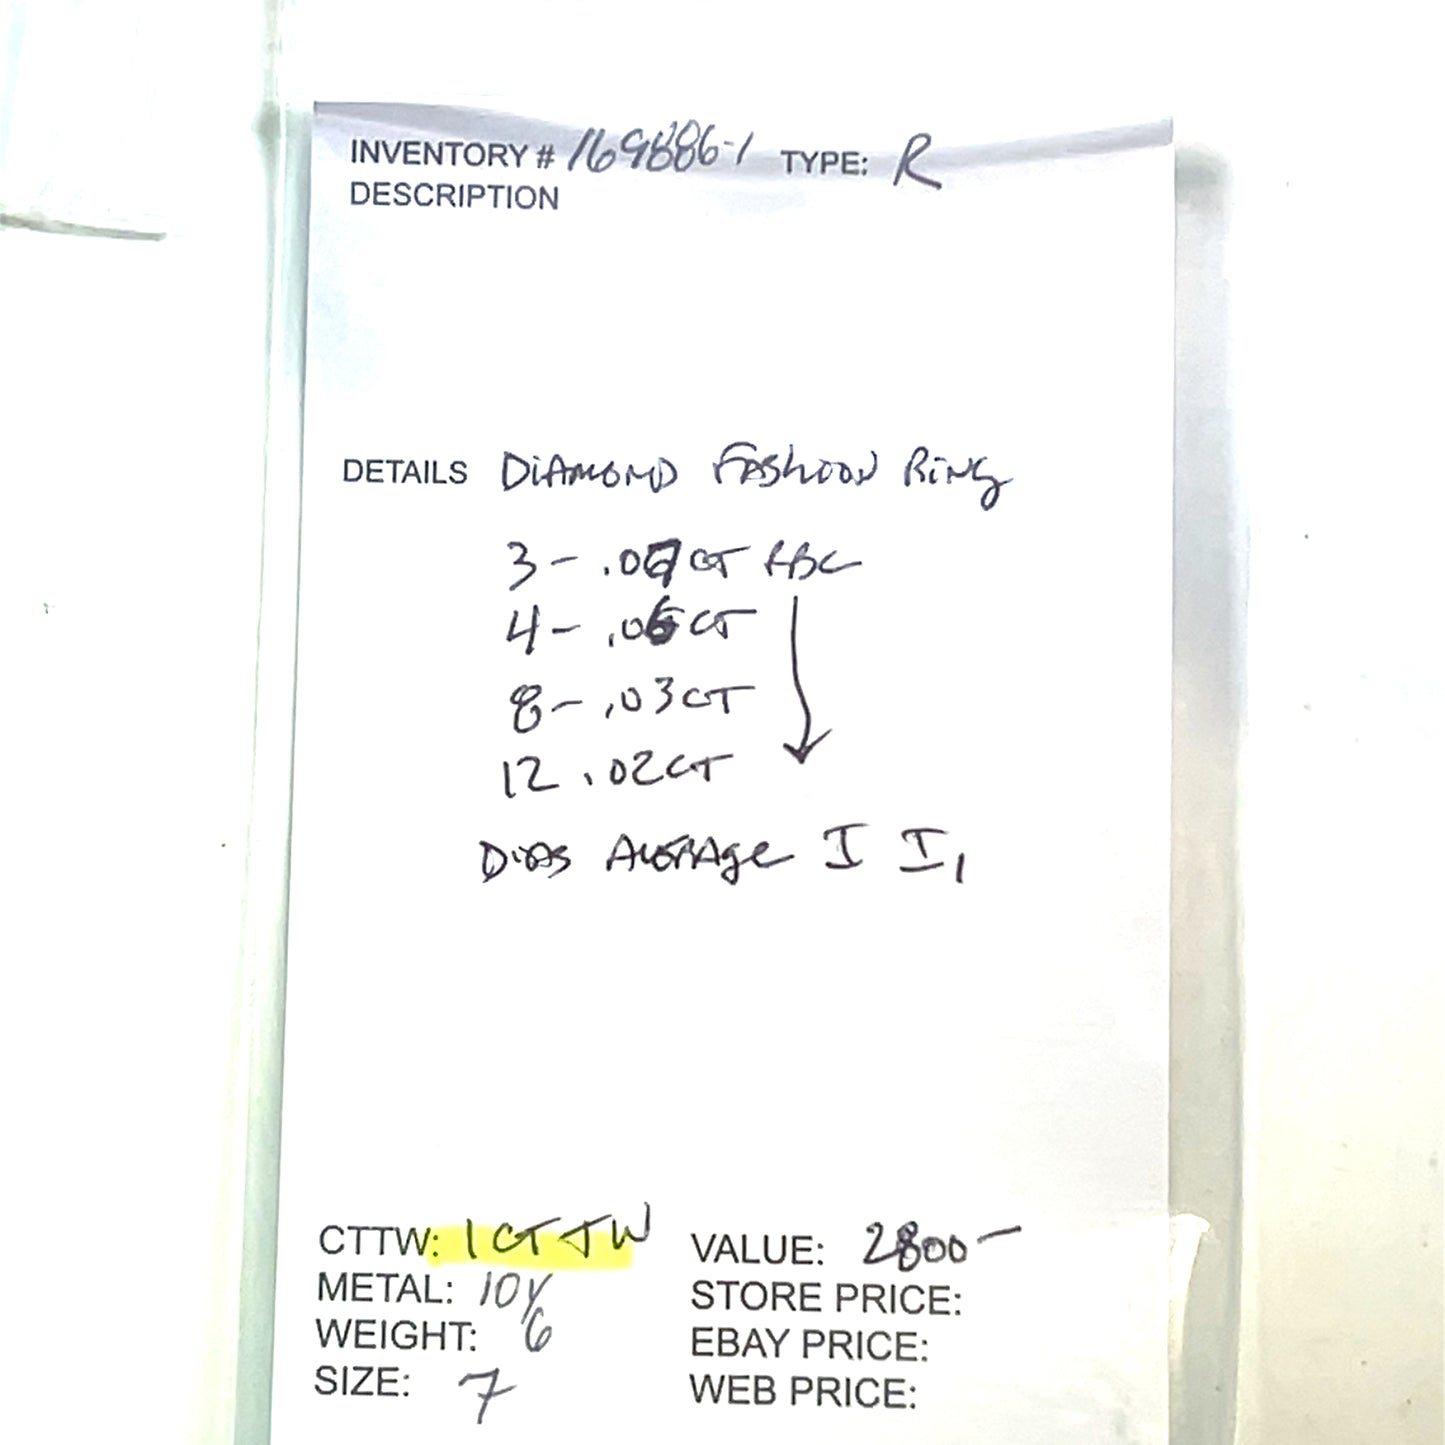 INVENTORY # 169886-1 TYPE: R
DESCRIPTION
DETAILS DIAMOND FASHION RING
3 - .07 CT RBC
4 - .06 CT
8 - .03 CT
12 .02 CT
DIAS AVERAGE I I1
CTTW: 1 CT TW VALUE: 2800-
METAL: 10Y STORE PRICE:
WEIGHT: 6 EBAY PRICE:
SIZE: 7 WEB PRICE: